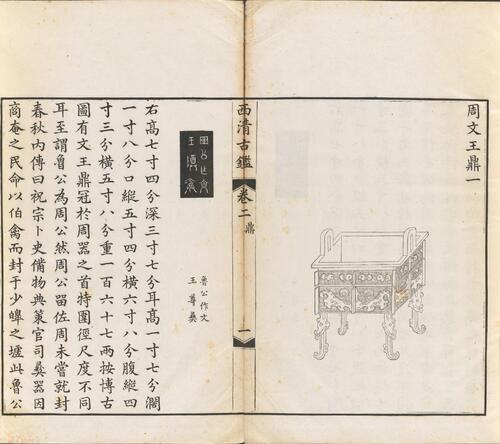 周文王鼎一
西清古鑑 卷二 鼎 一
魯公作文
王尊彝
魯公作文
王尊彝
右高七寸四分深三寸七分耳高一寸七分濶
一寸八分口縱五寸四分橫六寸八分腹縱四
寸三分橫五寸八分重一百六十七兩按博古
圖有文王鼎冠於周器之首特圍徑尺度不同
耳至謂魯公為周公然周公留佐周未嘗就封
春秋內傳曰祝宗卜史備物典策官司彝器因
商奄之民命以伯禽而封于少皞之墟此魯公